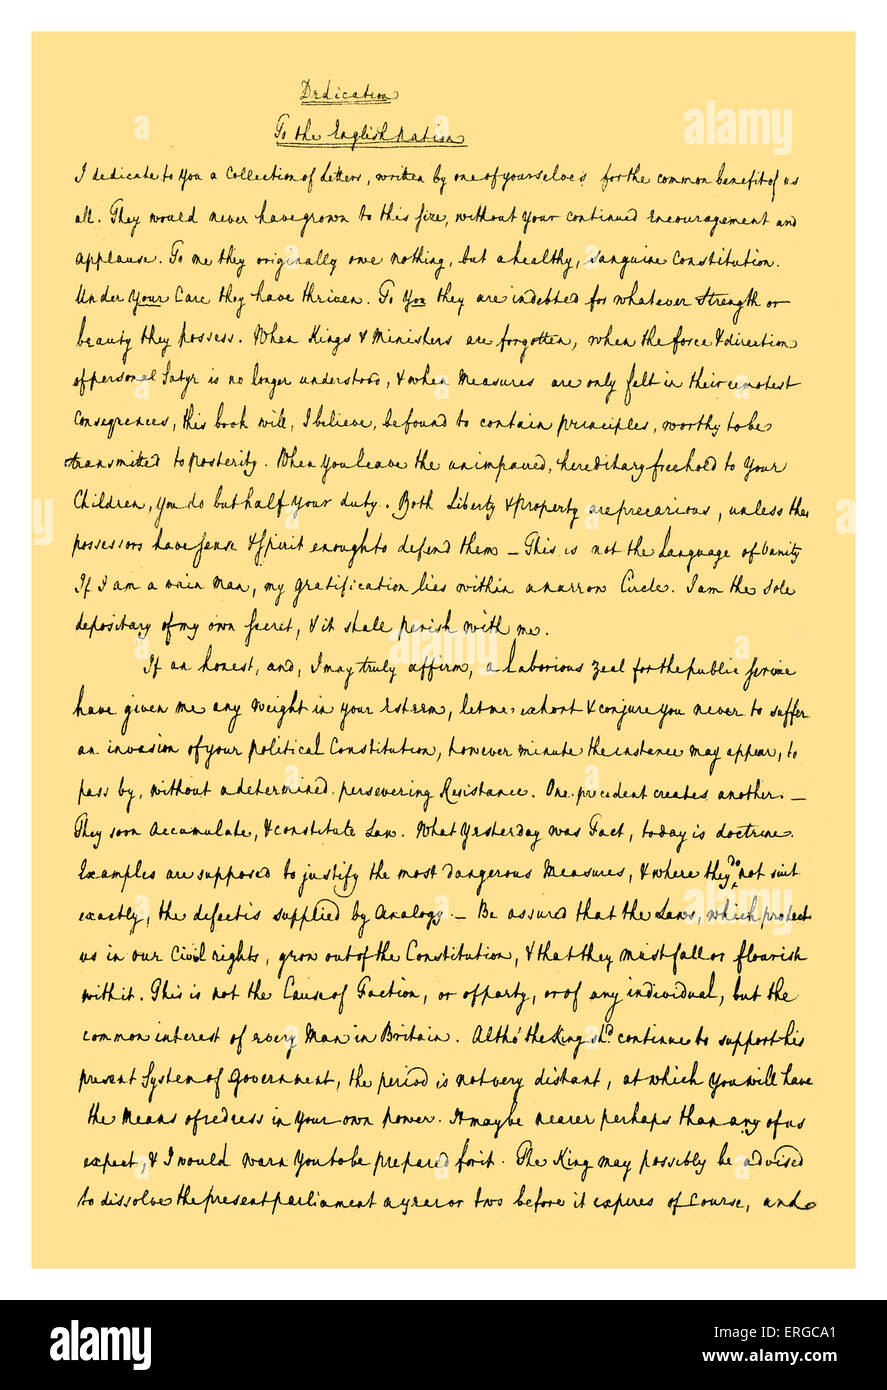 Dedication
To the English Nation
I dedicate to You a Collection of Letters, written by one of yourselves for the common benefit of us
all. They would never have grown to this size, without Your continued Encouragement and
applause. To me they originally owe nothing, but a healthy, sanguine Constitution.
Under Your Care they have thriven. To You they are indebted for whatever strength or
beauty they possess. When Kings & Ministers are forgotten, when the force & direction
of personal Satyr is no longer understood, & when Measures are only felt in their remotest
Consequences, this book will, I believe, be found to contain principles, worthy to be
transmitted to posterity. When You leave the unimpaired, hereditary freehold to Your
Children, You do but half Your duty. Both Liberty & Property are precarious, unless the
possessors have sense & Spirit enough to defend them – This is not the Language of Vanity
If I am a vain Man, my gratification lies within a narrow Circle. I am the sole
depositary of my own secret, & it shall perish with me.
If an honest, and, I may truly affirm, a laborious zeal for the public service
have given me any Weight in your Esteem, let me exhort & conjure You never to suffer
an invasion of your political Constitution, however minute the instance may appear, to
pass by, without a determined persevering Resistance. One precedent creates another. –
They soon accumulate, & constitute Law. What Yesterday was Fact, today is doctrine.
Examples are supposed to justify the most dangerous Measures, & where they do not suit
exactly, the defect is supplied by Analogy. – Be assured that the Laws, which protect
us in our Civil rights, grow out of the Constitution, & that they must fall or flourish
with it. This is not the Cause of Faction, or of party, or of any individual, but the
common interest of every Man in Britain. Altho' the King shd. continue to support his
present System of Government, the period is not very distant, at which You will have
the Means of redress in Your own power. It may be nearer perhaps than any of us
expect, & I would warn You to be prepared for it. The King may possibly be advised
to dissolve the present parliament a year or two before it expires of Course, and
alamy
Image ID: ERGCA1
www.alamy.com